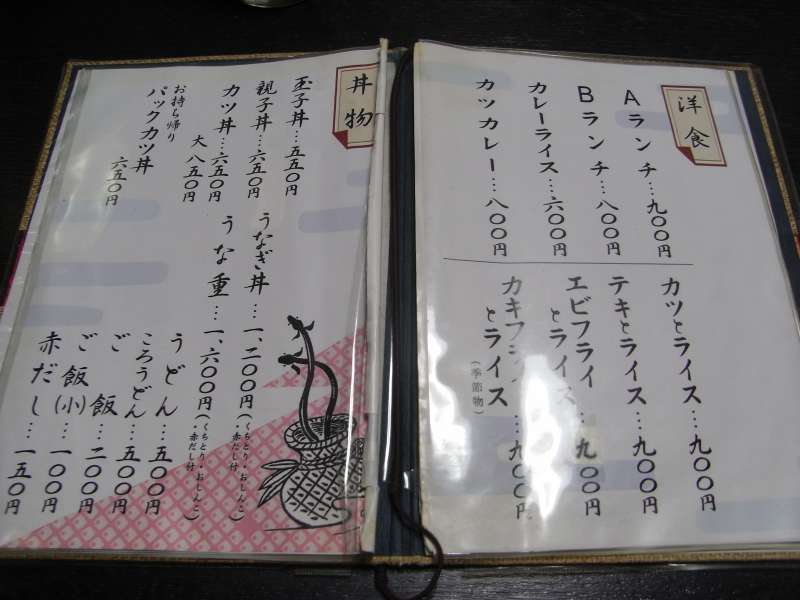 洋食
Aランチ…九〇〇円
Bランチ…八〇〇円
カレーライス…六〇〇円
カツカレー…八〇〇円
カツとライス…九〇〇円
テキとライス…九〇〇円
エビフライとライス…九〇〇円
カキフライとライス…九〇〇円
(季節物)
丼物
玉子丼…五五〇円
親子丼…六五〇円
カツ丼…六五〇円
大 八五〇円
お持ち帰り
パックカツ丼
六五〇円
うなぎ丼…一、二〇〇円(くちとり・おしんこ・赤だし付)
うな重…一、六〇〇円(くちとり・おしんこ・赤だし付)
うどん…五〇〇円
ころうどん…五〇〇円
ご飯…二〇〇円
ご飯(小)…一〇〇円
赤だし…一五〇円